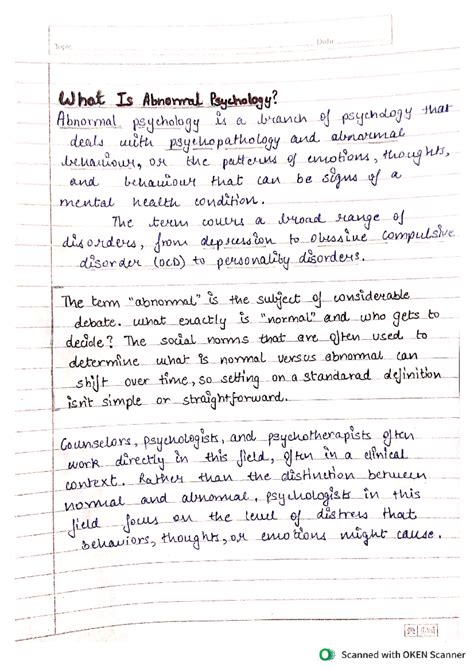 Topic Date
What Is Abnormal Psychology?
Abnormal psychology is a branch of psychology that
deals with psychopathology and abnormal
behaviour, or the patterns of emotions, thoughts,
and behaviour that can be signs of a
mental health condition.
The term covers a broad range of
disorders, from depression to obsessive compulsive
disorder (OCD) to personality disorders.
The term "abnormal" is the subject of considerable
debate. What exactly is "normal" and who gets to
decide? The social norms that are often used to
determine what is normal versus abnormal can
shift over time, so setting on a standarad definition
isn't simple or straightforward.
Counselors, psychologists, and psychotherapists often
work directly in this field, often in a clinical
context. Rather than the distinction between
normal and abnormal, psychologists in this
field focus on the level of distress that
behaviors, thoughts, or emotions might cause.
Scanned with OKEN Scanner